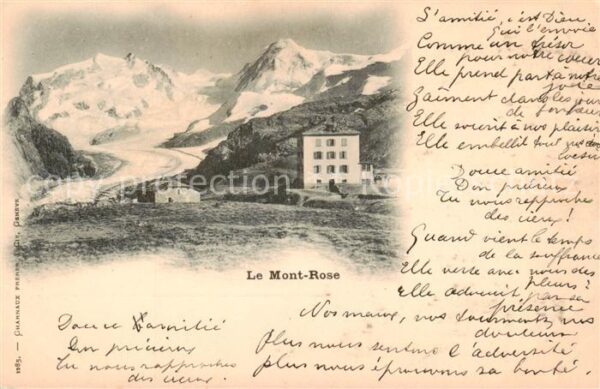 S'amitié, c'est Dieu
qui l'envoie
Comme un trésor
pour notre coeur
Elle prend part à notre
joie
dans les jours
de
Elle sourit à nos plaisirs
Elle embellit tous nos
coeurs
Douce amitié
Don précieux
Tu nous rapproches
des cieux!
Quand vient le temps
de la souffrance
Elle verse avec nous des
pleurs!
Elle adoucit par sa
présence
Nos maux, nos tourments, nos
douleurs
Plus nous sentons l'adversité
plus nous éprouvons sa bonté.
Le Mont-Rose
Douce amitié
Don précieux
Tu nous rapproches
des cieux!
1185. — CHARNAUX FRÈRES & Cie, GENÈVE.
copyright